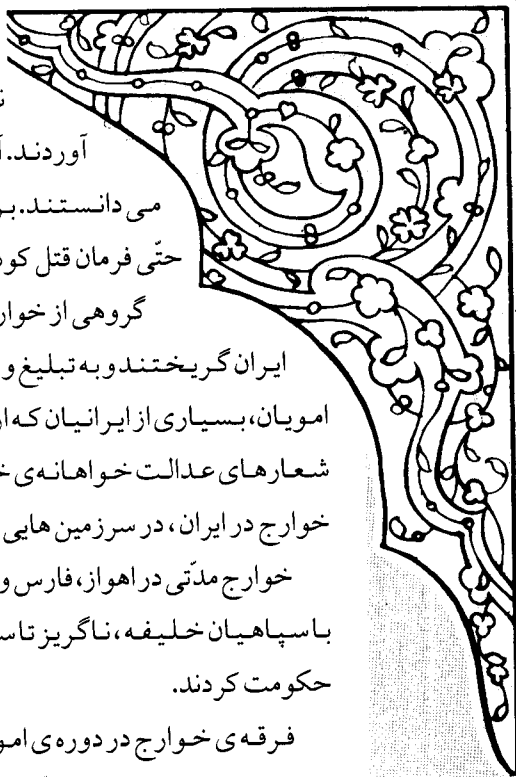 آوردند.
می‌دانستند.
حتّی فرمان قتل
گروهی از
ایران گریختند و به تبلیغ و
امویان، بسیاری از ایرانیان که
شعارهای عدالت خواهانه‌ی
خوارج در ایران، در سرزمین هایی
خوارج مدّتی در اهواز، فارس و
با سپاهیان خلیفه، ناگریز تا
حکومت کردند.
فرقه‌ی خوارج در دوره‌ی